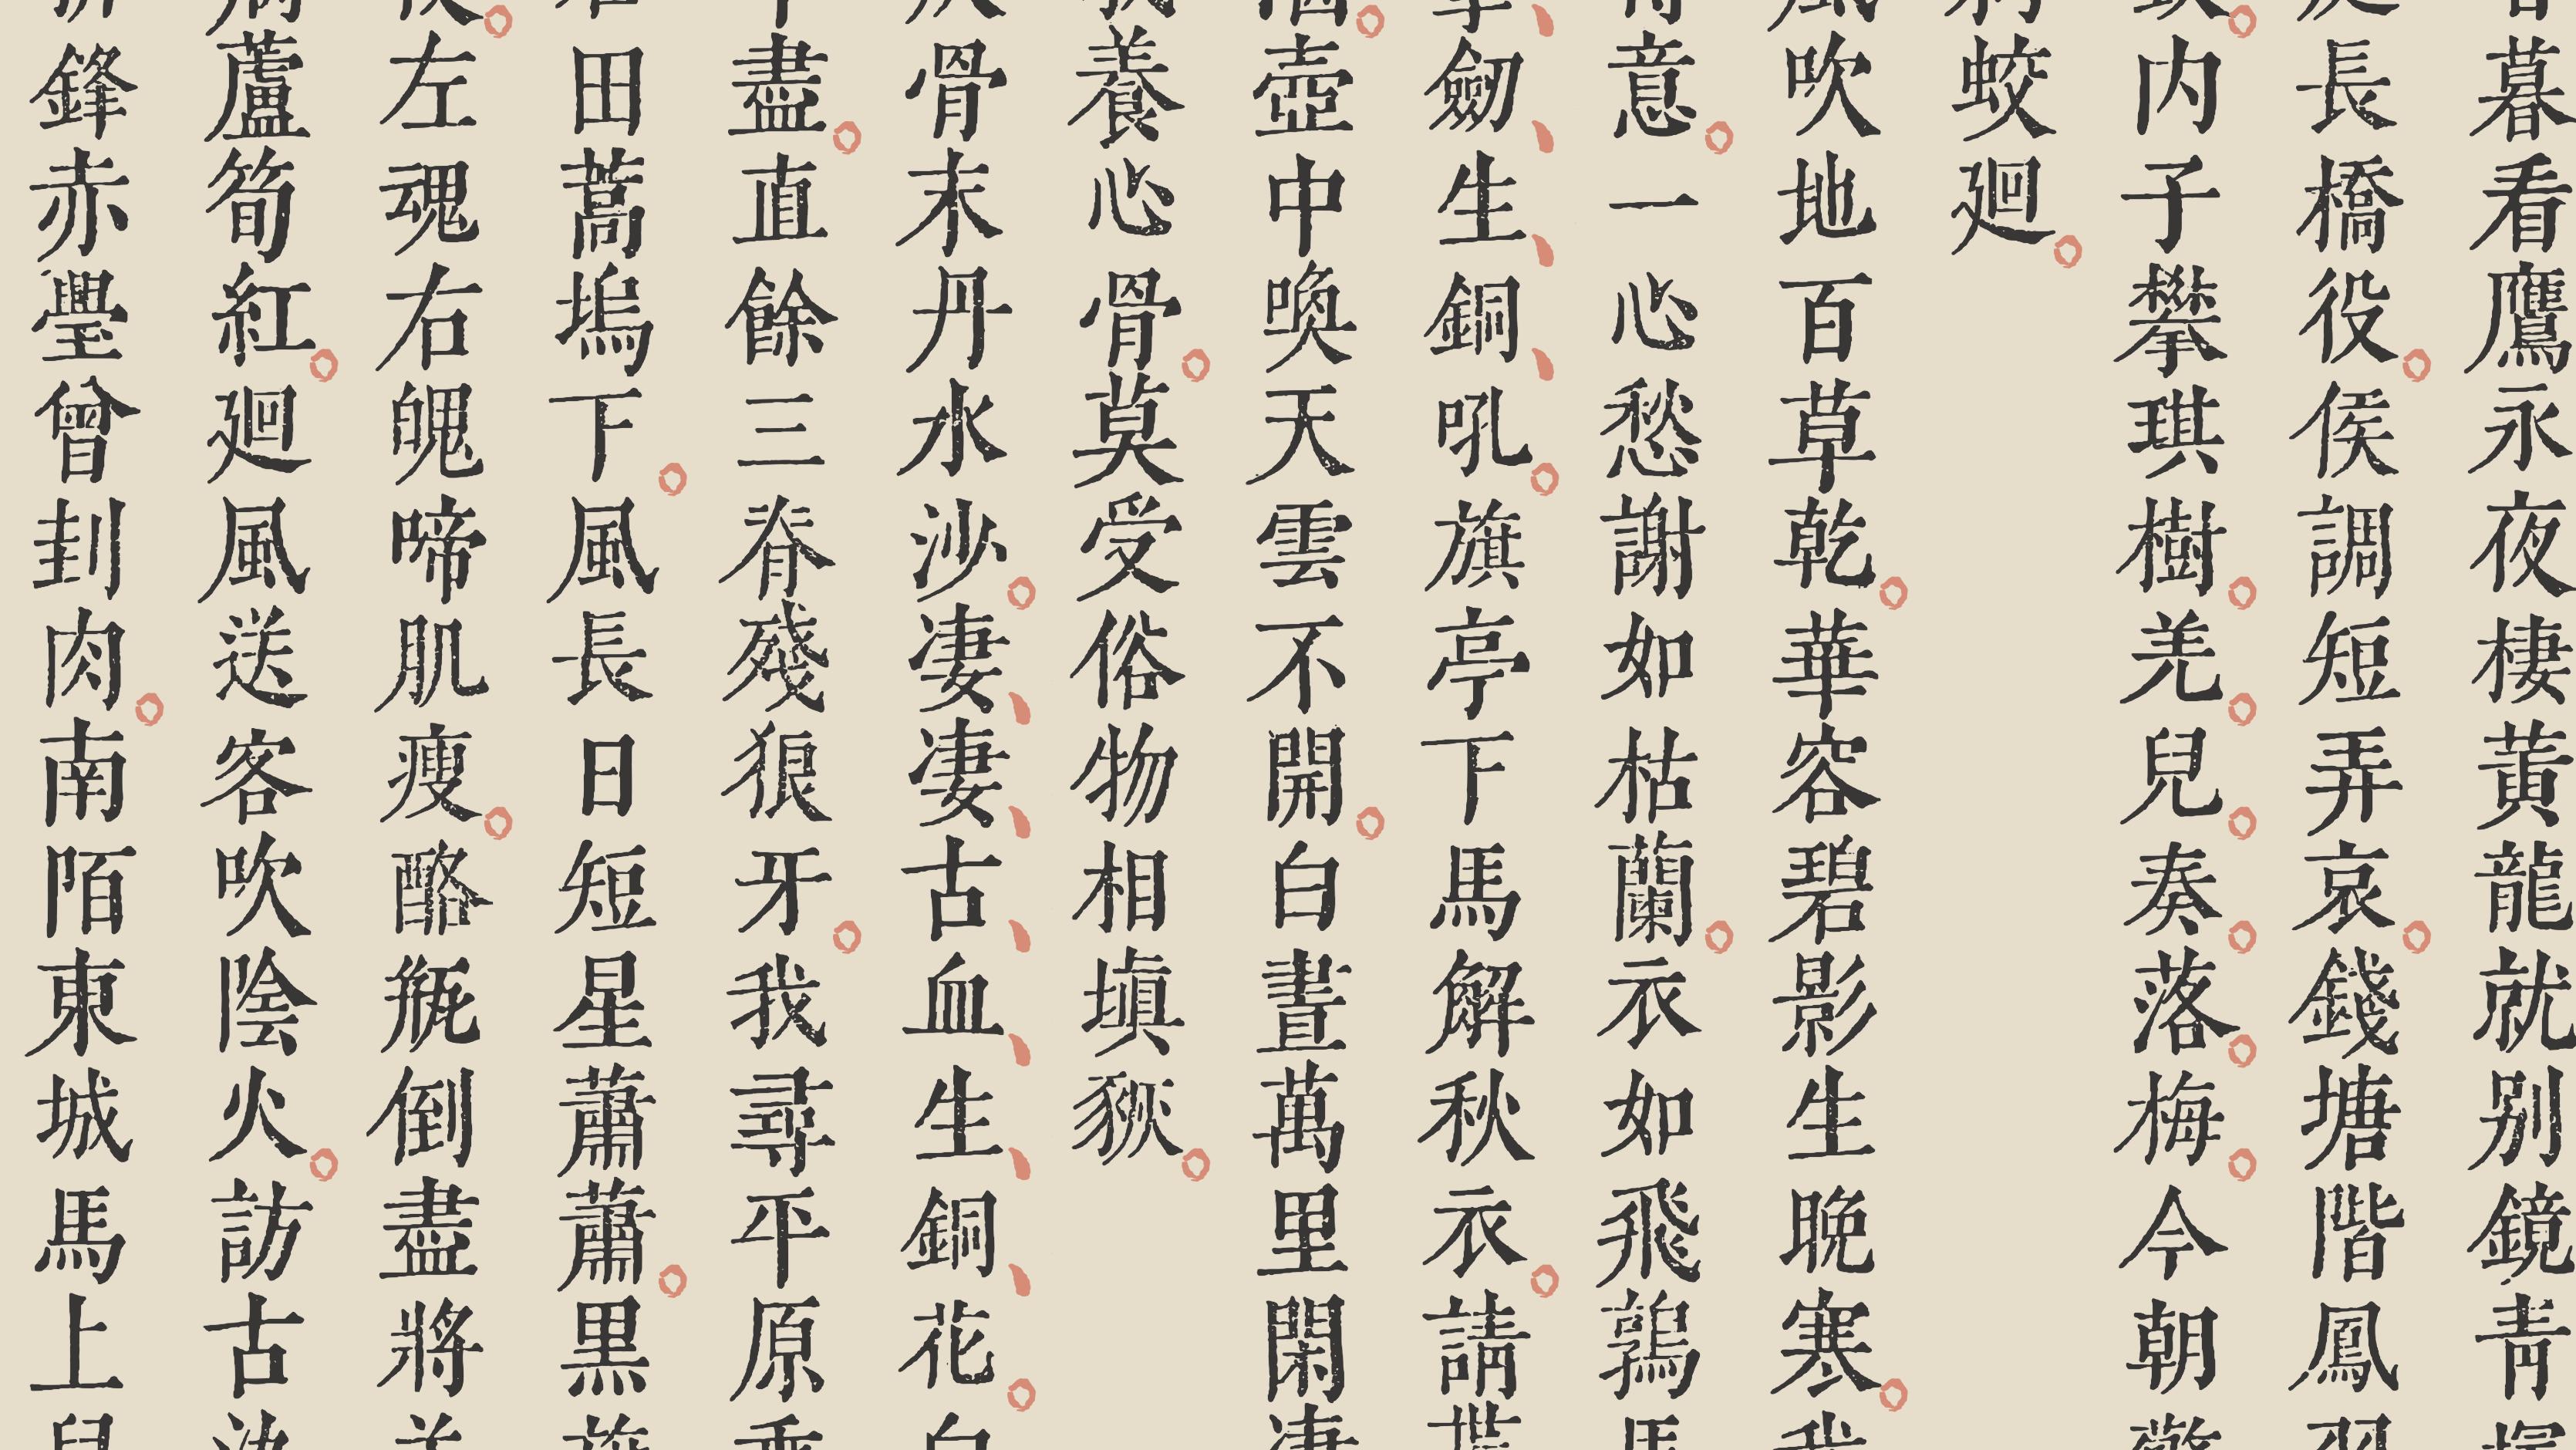 暮看鷹永夜棲黃龍就别鏡青
長橋役。侯調短弄哀。錢塘階鳳
内子攀琪樹。羌。兒。奏。落。梅。今朝
蛟廻。
吹地百草乾。華容碧影生晚寒。
意。一心愁謝如枯蘭。衣如飛鶉
劒、生、銅、吼。旗亭下馬解秋衣。請
壺中喚天雲不開。白晝萬里閑
養心骨。莫受俗物相填豗。
骨末丹水沙。凄、凄、古、血、生、銅、花。
盡。直餘三脊殘狼牙。我尋平原
田蒿塢下。風長日短星蕭蕭。黑
左魂右魄啼肌瘦。酪瓶倒盡將
蘆筍紅。廻風送客吹陰火。訪古
鋒赤璺曾刲肉。南陌東城馬上